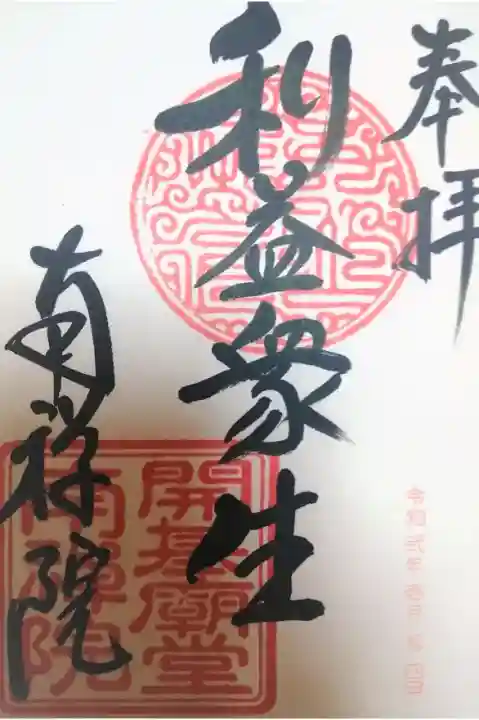 奉拝
利益衆生
南禅院
開基廟堂
南禪院
令和弐年